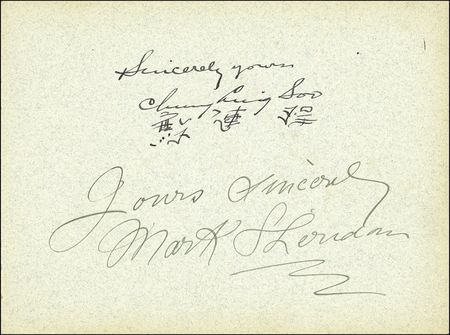 Sincerely yours
Chung Ling Soo
Yours Sincerely
Mark Sheridan